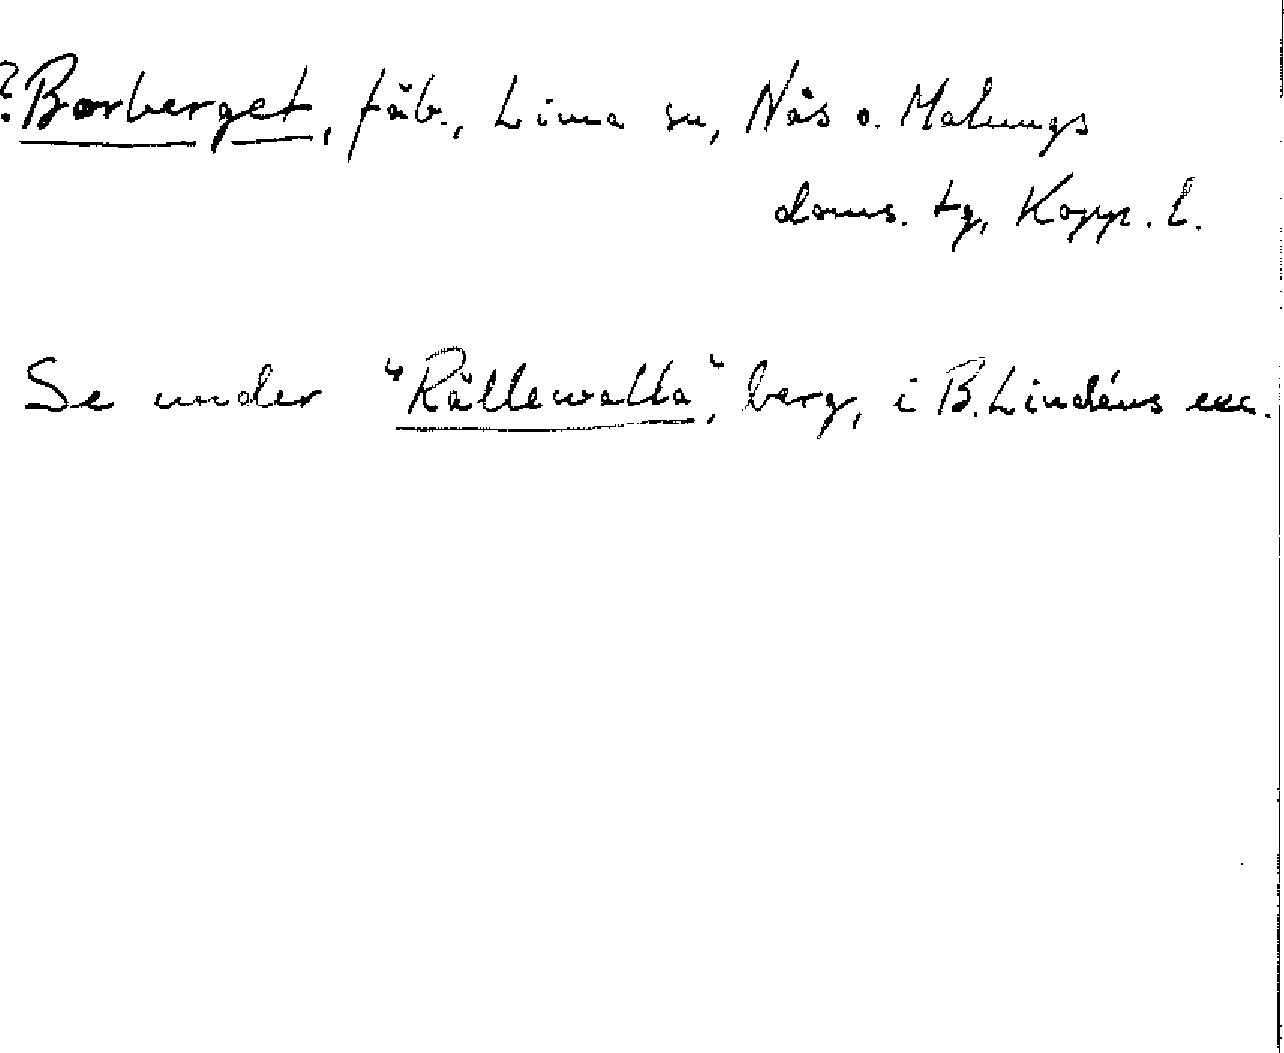 ? Borberget, fäb., Lima sn, Nås o. Malungs
doms. tg, Kopp. l.
Se under "Rällewalla", berg, i B. Lindéns exc.